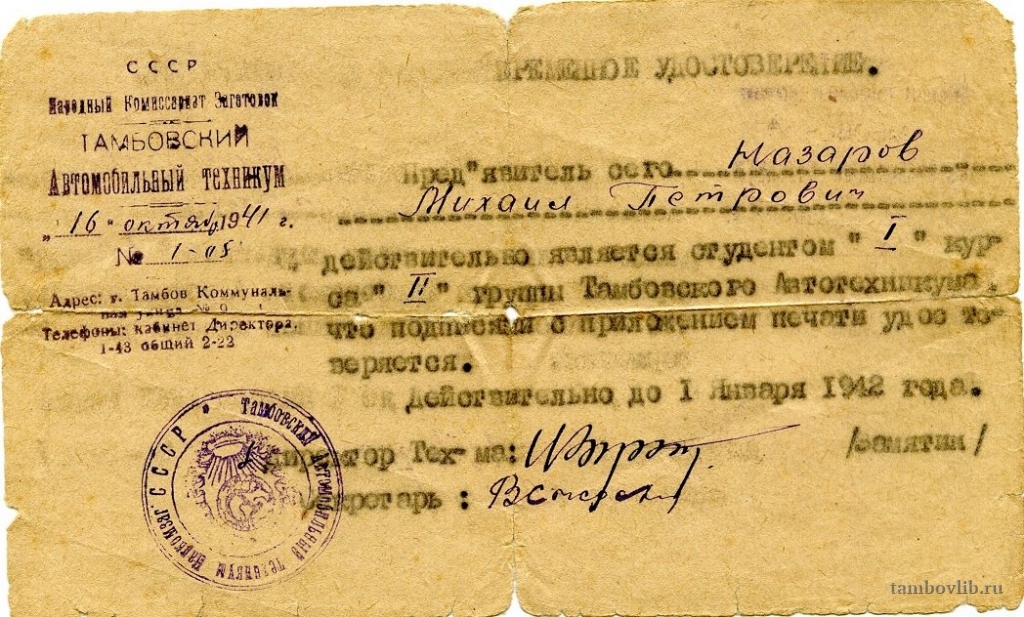 СССР
Народный Комиссариат Заготовок
ТАМБОВСКИЙ
Автомобильный техникум
„16" октября 1941 г.
№ 1-05
Адрес: г. Тамбов Коммуналь-
ная улица № 9
Телефоны: кабинет Директора,
1-43 общий 2-22
ВРЕМЕННОЕ УДОСТОВЕРЕНИЕ.
Пред"явитель сего Назаров
Михаил Петрович
действительно является студентом " I " кур-
са " II " группы Тамбовского Автотехникума,
что подписями с приложением печати удосто-
веряется.
Действительно до 1 Января 1942 года.
Директор Тех-ма: /Замятин/
Секретарь :
СССР * Тамбовский Автомобильный техникум Наркомзаг.
tambovlib.ru